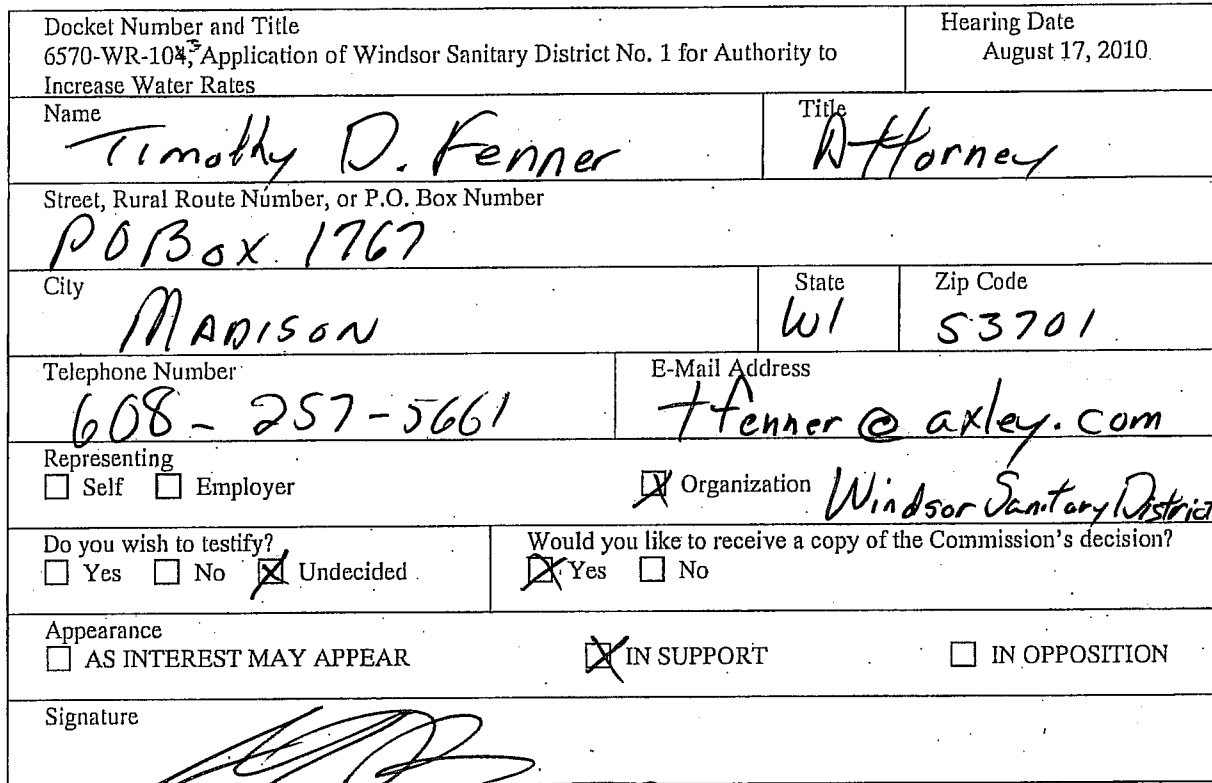 Docket Number and Title
6570-WR-103, Application of Windsor Sanitary District No. 1 for Authority to
Increase Water Rates
Hearing Date
August 17, 2010
Name
Timothy D. Fenner
Title
Attorney
Street, Rural Route Number, or P.O. Box Number
PO Box 1767
City
MADISON
State
WI
Zip Code
53701
Telephone Number
608-257-5661
E-Mail Address
tfenner@axley.com
Representing
☐ Self ☐ Employer ☒ Organization Windsor Sanitary District
Do you wish to testify?
☐ Yes ☐ No ☒ Undecided
Would you like to receive a copy of the Commission's decision?
☒ Yes ☐ No
Appearance
☐ AS INTEREST MAY APPEAR ☒ IN SUPPORT ☐ IN OPPOSITION
Signature